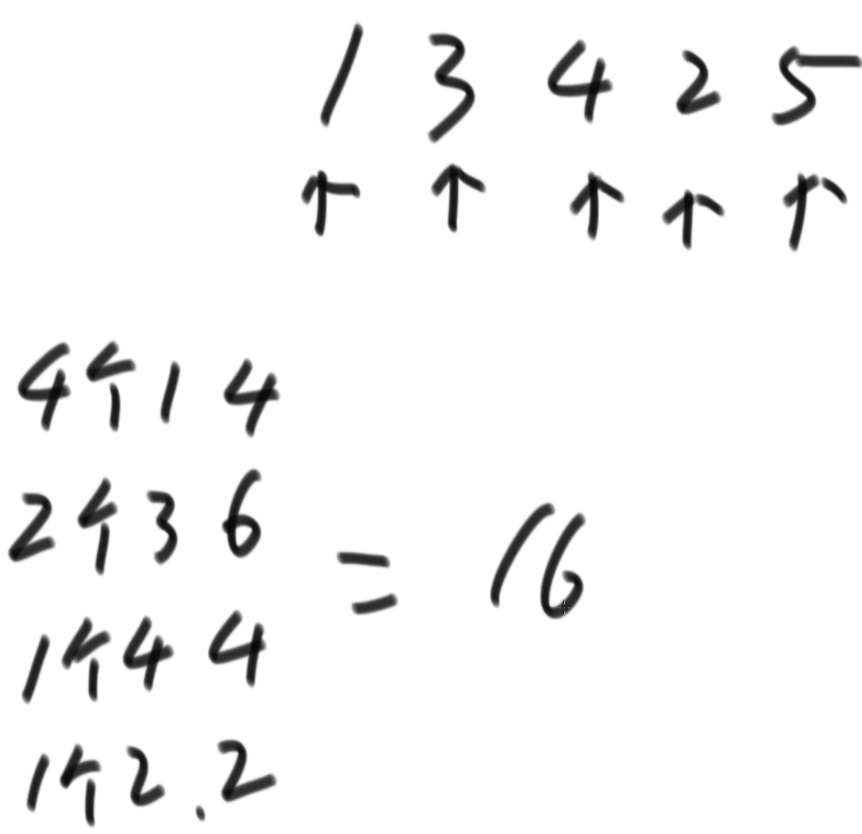 1 3 4 2 5
↑ ↑ ↑ ↑ ↑
4个1 4
2个3 6
1个4 4
1个2.2
= 16